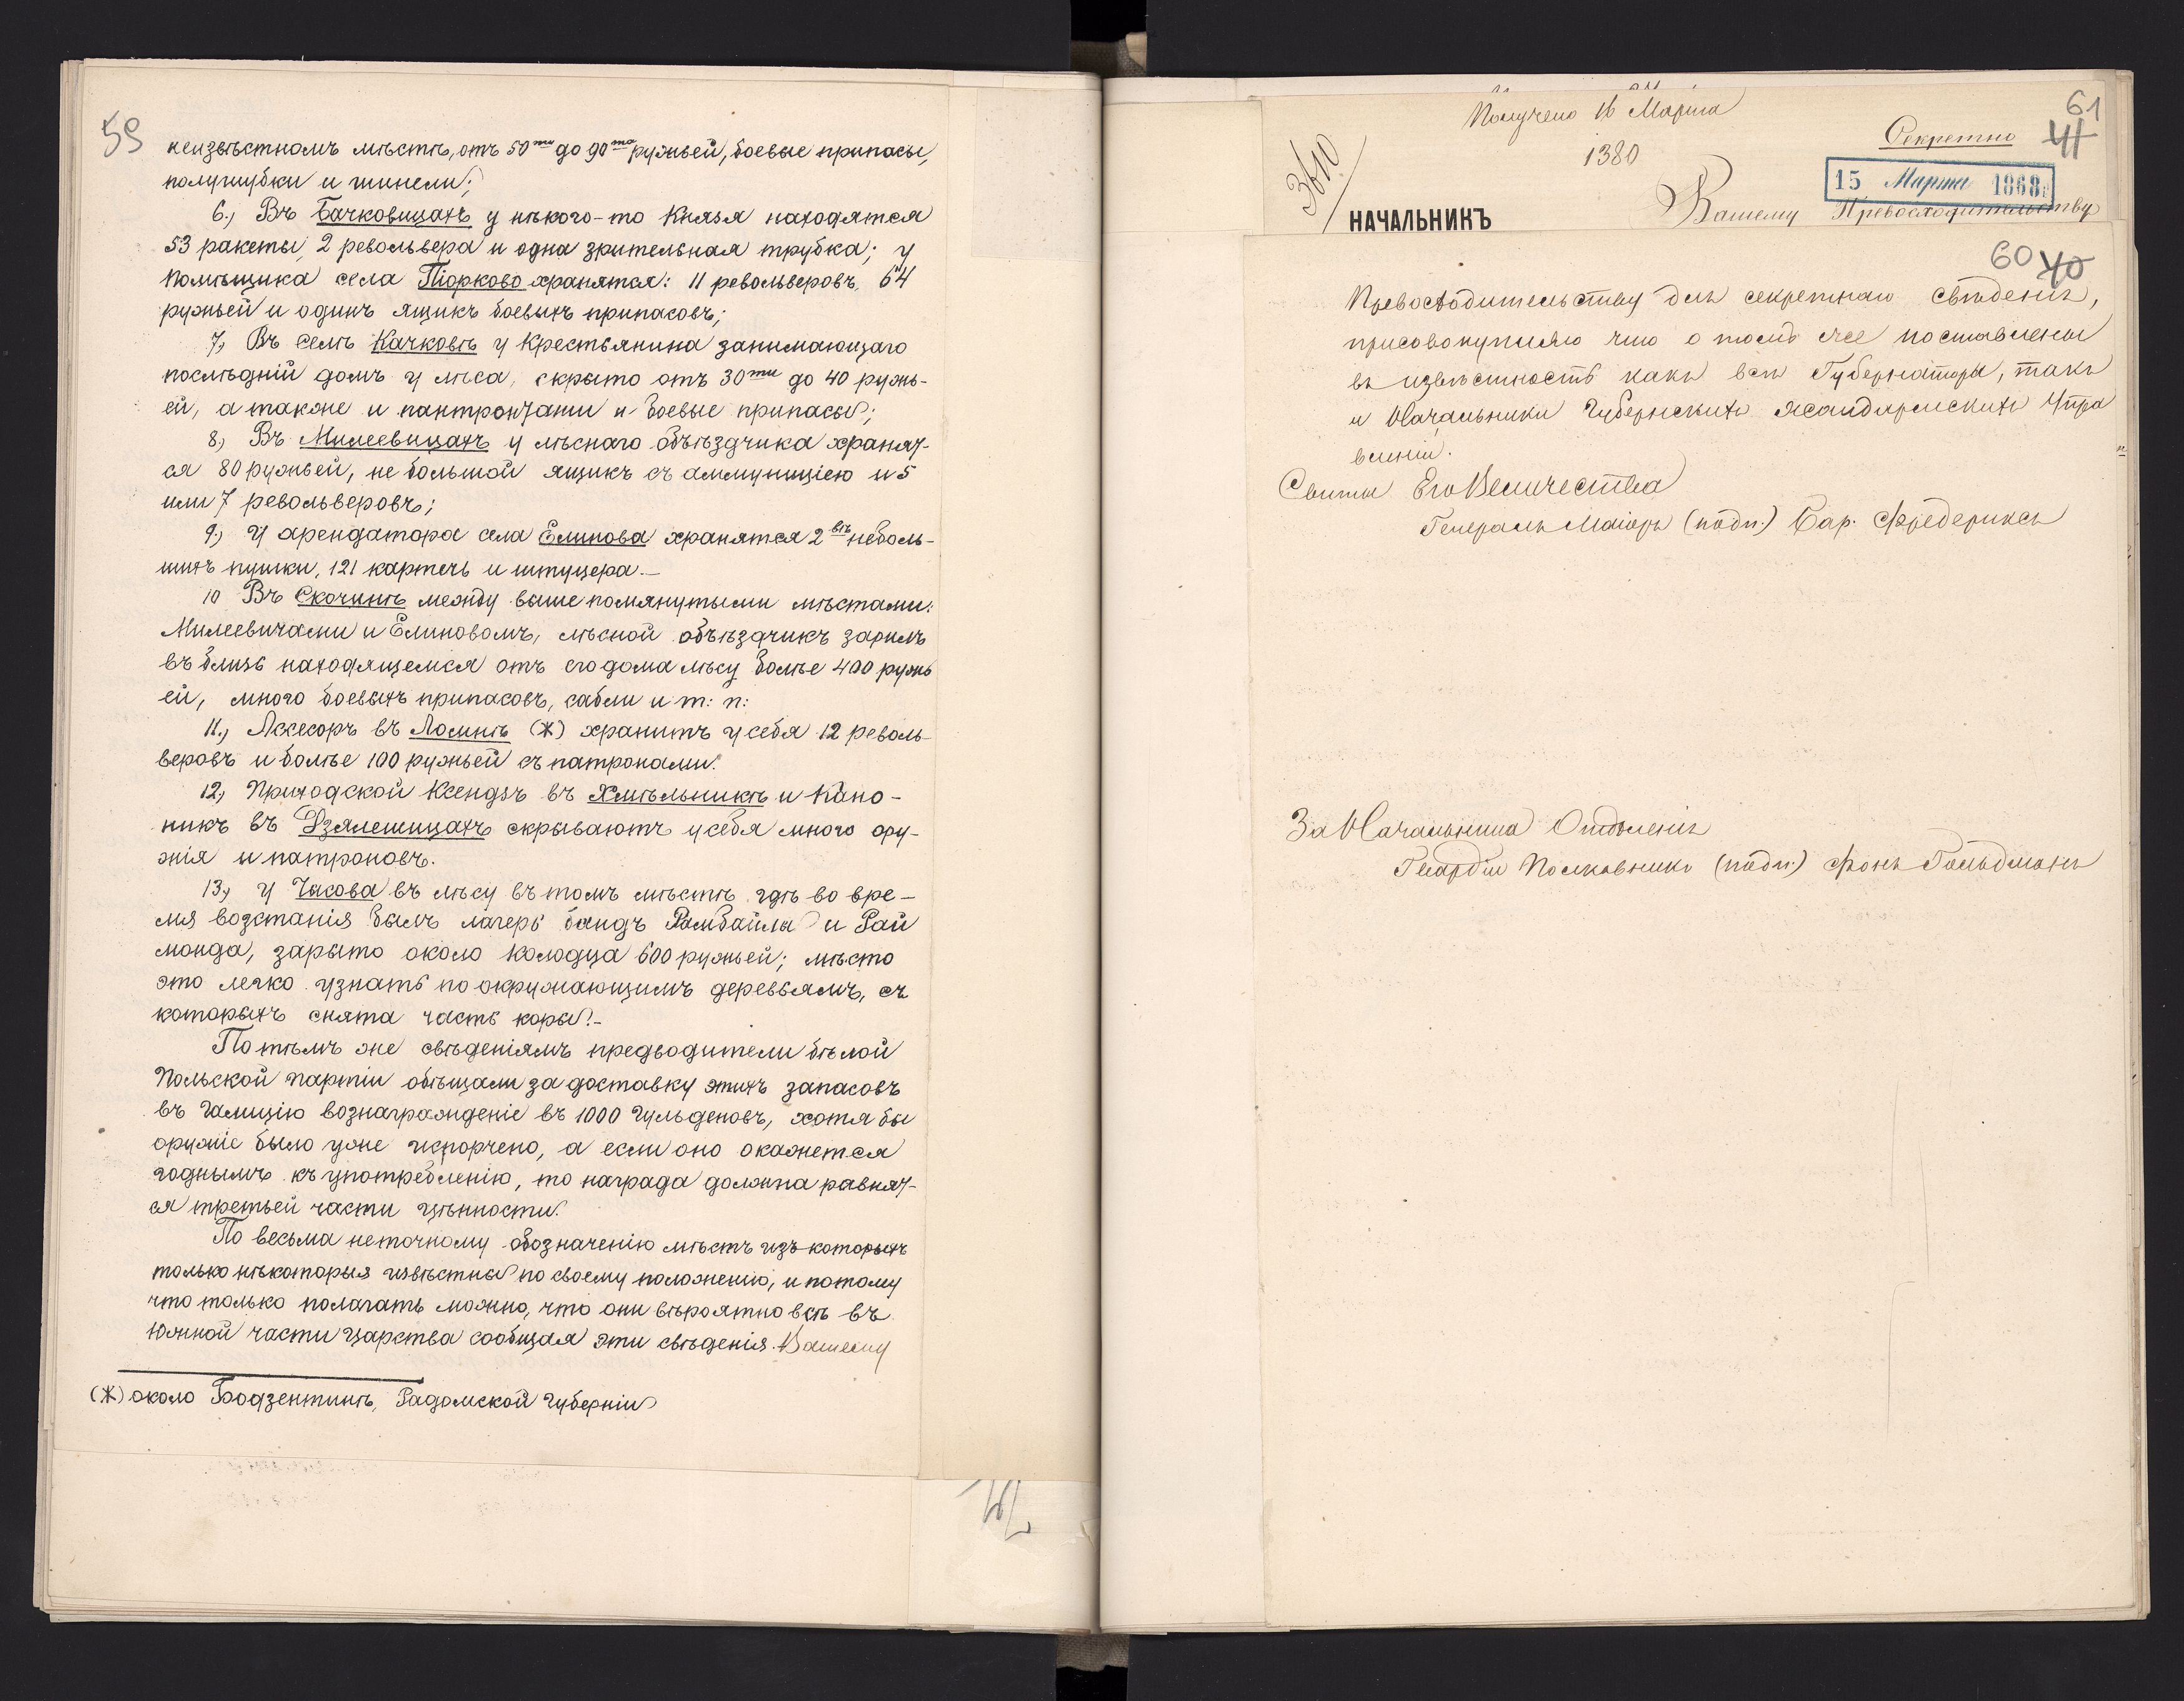 59
неизвѣстномъ мѣстѣ, отъ 50ти до 90то ружьей, боевые припасы,
полушубки и шинели;
6.) Въ Бачковицахъ у нѣкого-то Князя находятся
53 ракеты, 2 револьвера и одна зрительная трубка; у
помѣщика села Піорково хранятся: 11 револьверовъ, 64
ружьей и одинъ ящикъ боевыхъ припасовъ;
7.) Въ селѣ Качковѣ у Крестьянина занимающаго
послѣдній домъ у лѣса, скрыто отъ 30ти до 40 ружь-
ей, а также и пантронташи и боевые припасы;
8.) Въ Милеевицахъ у лѣснаго объѣздчика хранят-
ся 80 ружьей, не большой ящикъ съ аммуниціею и 5
или 7 револьверовъ;
9.) У арендатора села Елинова хранятся 2вѣ неболь-
шихъ пушки, 121 картечь и штуцера.—
10 Въ Скочинѣ между выше помянутыми мѣстами:
Милеевичами и Елиновомъ, лѣсной объѣздчикъ зарилъ
въ близь находящемся отъ его дома лѣсу болѣе 400 ружь
ей, много боевыхъ припасовъ, сабли и т: п:
11.) Ассесоръ въ Ломнѣ (Ж) хранитъ у себя 12 револь-
веровъ и болѣе 100 ружьей съ патронами.
12.) Приходской Ксендзъ въ Хмѣльникѣ и Кано-
никъ въ Дзялешицахъ скрываютъ у себя много ору-
жія и патроновъ.
13.) У Часова въ лѣсу въ томъ мѣстѣ гдѣ во вре-
мя возстанія былъ лагерь бандъ Рамбайла и Рай
монда, зарыто около колодца 600 ружьей; мѣсто
это легко узнать по окружающимъ деревьямъ, съ
которыхъ снята часть коры.—
По тѣмъ же свѣденіямъ предводители бѣлой
Польской партіи обѣщали за доставку этихъ запасовъ
въ Галицію вознагражденіе въ 1000 Гульденовъ, хотя бы
оружіе было уже испорчено, а если оно окажется
годнымъ къ употребленію, то награда должна равнят-
ся третьей части цѣнности.
По весьма неточному обозначенію мѣстъ изъ которыхъ
только нѣкоторыя извѣстны по своему положенію, и потому
что только полагать можно, что они вѣроятно всѣ въ
Южной части Царства сообщая эти свѣденія Вашему
(Ж) около Бодзентинѣ, Радомской Губерніи
Получено 16 Марта
1380
3610
61
41
Секретно
15 Марта 1868.
НАЧАЛЬНИКЪ
Вашему Превосходительству
60 40
Превосходительству для секретнаго свѣденія,
присовокупляю что о томъ же поставлены
въ извѣстность какъ всѣ Губернаторы, такъ
и Начальники Губернскихъ жандармскихъ Упра
вленій.
Свиты Его Величества
Генералъ Маіоръ (подп.) Бар. Фредериксъ
За Начальника Отдѣленія
Гвардіи Полковникъ (подп.) фонъ Гольдманъ